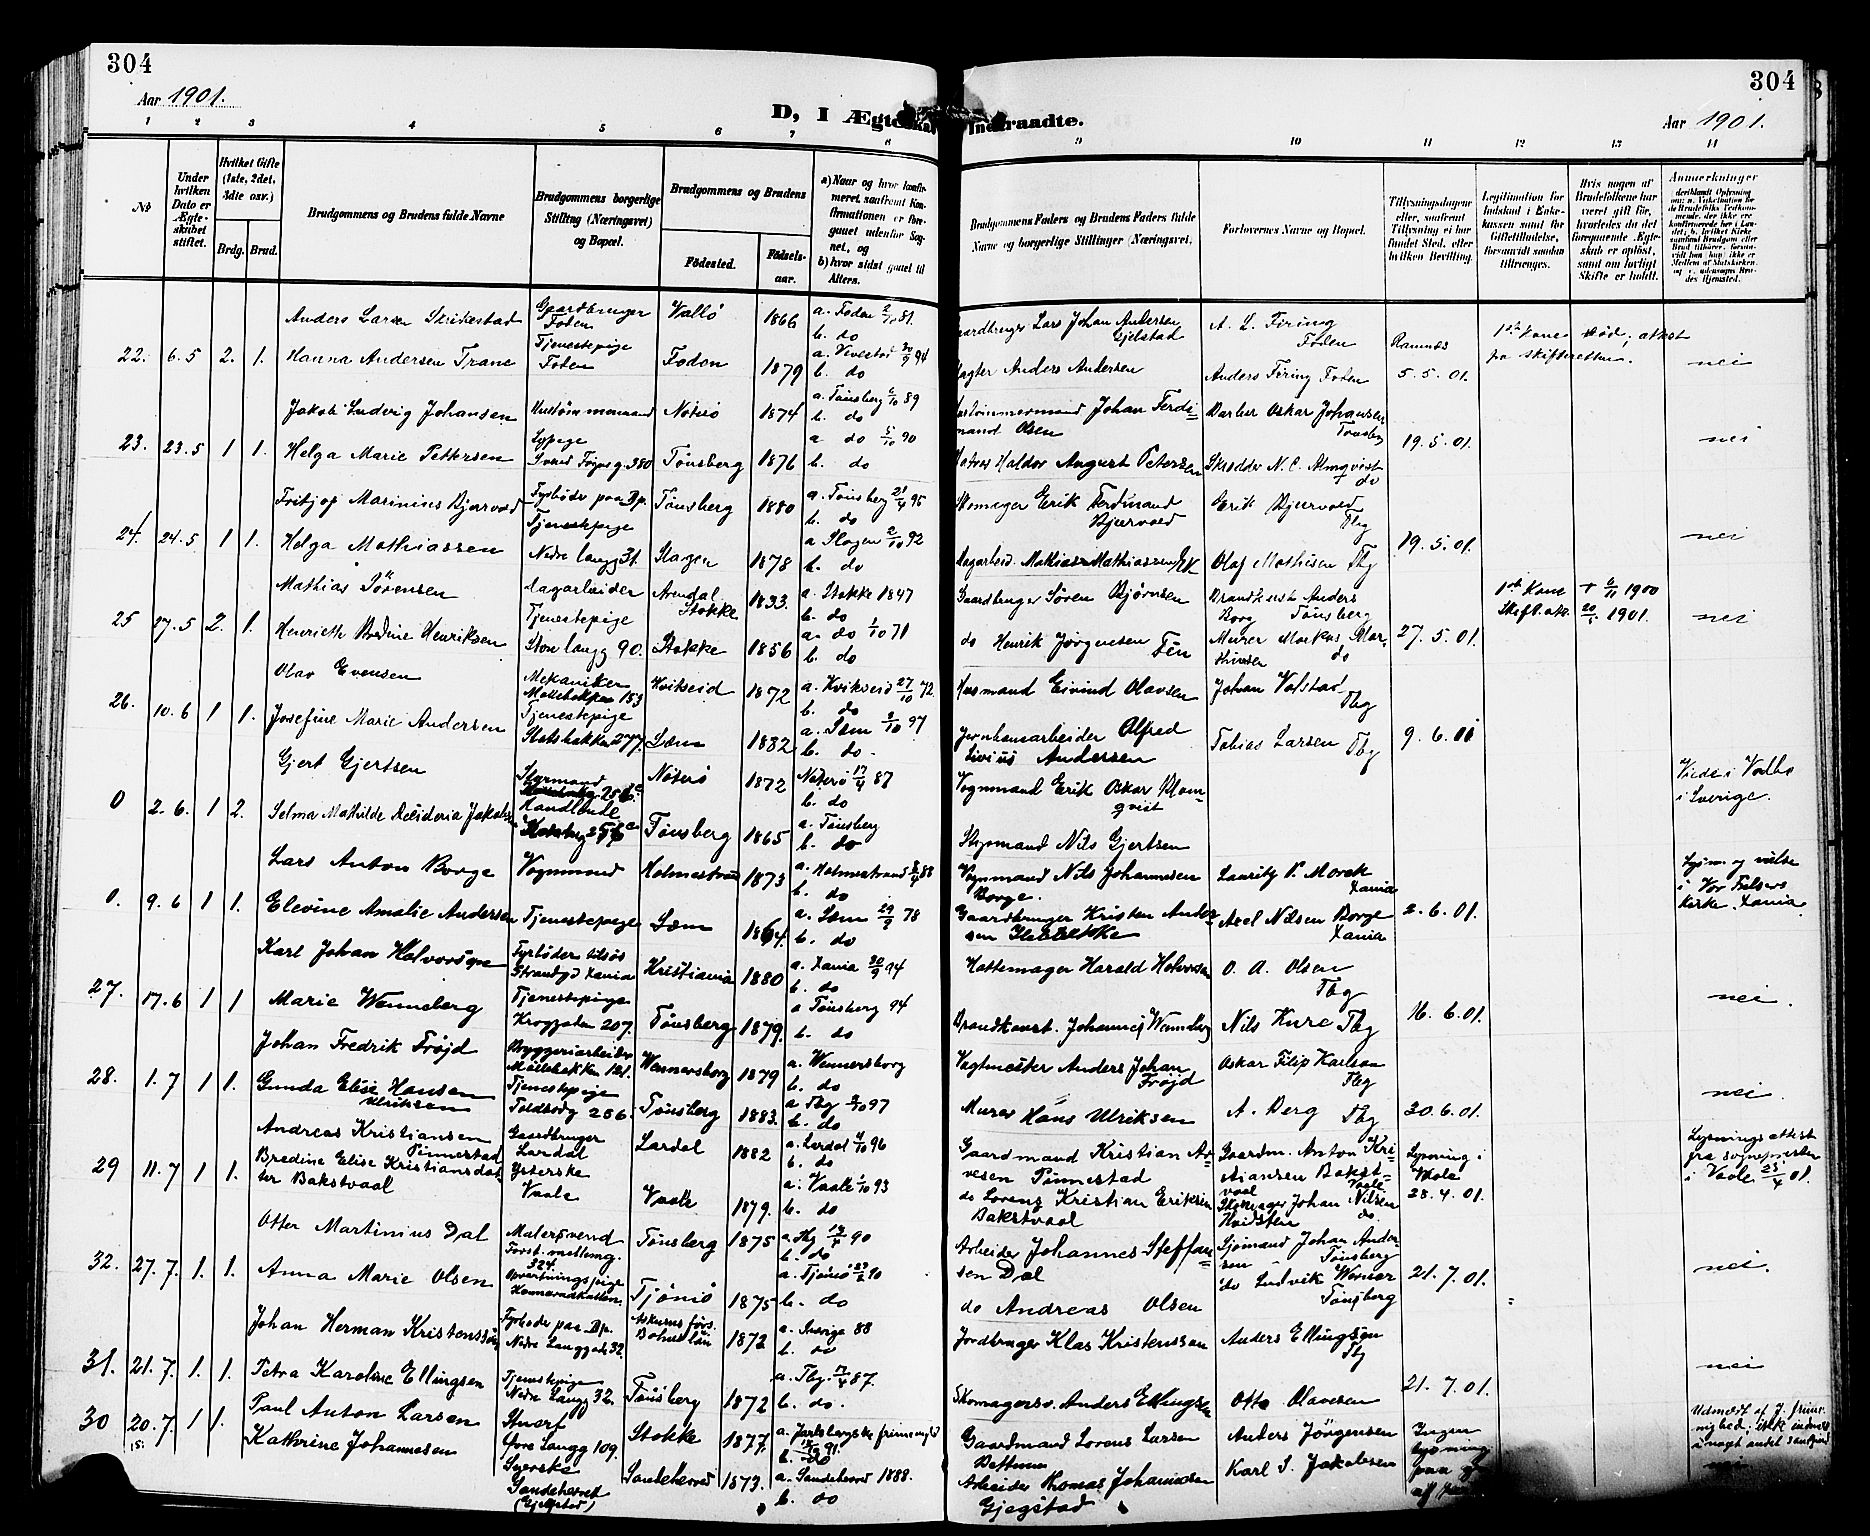 304
304
Aar 1901.
Aar 1901.
D, I Ægteskab Indtraadte.
1 2 3 4 5 6 7 8 9 10 11 12 13 14
No
Under hvilken Dato er Ægteskabet stiftet.
Hvilket Gifte (1ste, 2det, 3die osv.)
Brdg. Brud.
Brudgommens og Brudens fulde Navne
Brudgommens borgerlige Stilling (Næringsvei) og Bopæl.
Brudgommens og Brudens
Fødested.
Fødselsaar.
a) Naar og hvor konfirmeret, saafremt Konfirmationen er foregaaet udenfor Sognet, og
b) hvor sidst gaaet til Alters.
Brudgommens Faders og Brudens Faders fulde Navne og borgerlige Stillinger (Næringsvei).
Forlovernes Navne og Bopæl.
Tillysningsdagene eller, saafremt Tillysning ei har fundet Sted, efter hvilken Bevilling.
Legitimation for Indskud i Enkekassen samt for Giftetilladelse, forsaavidt saadan tiltrænges.
Hvis nogen af Brudefolkene har været gift før, hvorledes da det foregaaende Ægteskab er opløst, samt om lovligt Skifte er holdt.
Anmerkninger
Anders Larsen Skrikestad
Gaardbruger Foden
Vallø
1866
b. do
Lars Johan Andersen
A. L. Firing Foden
Ramnæs
1ste Kone død, attest fra skifteretten.
22. 6.5 2. 1.
Hanna Andersen Trane
Tjenestepige Foden
Foden
1879
b. do
Anders Andersen
Anders Firing Foden
5.5.01.
nei
Jakob Ludvig Johansen
Nøterø
1874
a. Tønsberg 6/10 89
b. do
Johan Ferdinand Olsen
Barber Oskar Johansen Tønsberg
23. 23.5 1 1.
Helga Marie Pettersen
Sypige
Tønsberg
1876
a do 5/10 90
b. do
Matros Haldor August Petersen
Skrædder N. C. Almqvist do
19.5.01.
nei
Fritjof Marinius Bjervod
Fyrbøder paa Dp.
Tønsberg
1880
a. Tønsberg 21/4 95
b. do
Erik Ferdinand Bjervold
Erik Bjervold Tbg
24. 24.5 1 1.
Helga Mathiassen
Tjenestepige Nedre Langg 31.
Slagen
1878
a Slagen 2/10 92
b. do
Mathias Mathiassen
Olaf Mathisen Tbg
19.5.01.
nei
Mathias Sörensen
Arendal Stokke
1833.
a. Stokke 1847
b. do
Gaardbruger Sören Bjørnsen
Anders Borg Tønsberg
1ste Kone + 6/11 1900
25 27.5 2. 1.
Henriette Bredine Henriksen
Tjenestepige Store Langg 90.
Stokke
1856
a. do 1/10 71
b. do
do Henrik Jørgensen Fen
Murer Markus Marthinsen do
27.5.01.
Skift.att. 1901.
nei
Olav Evensen
Mekaniker Møllebakken 153
Kviteseid
1872
a. Kviteseid 27/10 72.
b. do
Husmand Eivind Olavsen
Johan Valstad Tbg
26. 10.6 1 1.
Josefine Marie Andersen
Tjenestepige Slotsbakken 277.
Sæm
1882
a. Sæm 3/10 97
b. do
Jernbanearbeider Alfred Livius Andersen
Tobias Larsen Tbg
9.6.01
Gjert Gjertsen
Styrmand
Nøterø
1872
Nøterø 17/4 87
b. do
Vognmand Erik Oskar Blomqvist
Viede i Valbo i Sverige.
0 2.6. 1 2.
Selma Mathilde Desideria Jakobsen
Tønsberg
1865
a. Tønsberg
b. do
Styrmand Nils Gjertsen
Lars Anton Borge
Vognmand
Holmestrand
1873
a. Holmestrand 88
b. do
Vognmand Nils Johannesen Borge.
Lauritz P. Morck Xania
Lysn. og vielse i Vor Frelsers kirke, Xania.
0. 9.6 1 1.
Elevine Amalie Andersen
Tjenestepige
Sæm
1864.
a. Sæm 29/9 78
b. do
Gaardbruger Kristen Andersen
Axel Nilsen Borge Xania
2.6.01.
Karl Johan Halvorsen
Kristiania
1880
a. Xania 30/9 94
b. do
Hattemager Harald Halvorsen
O. A. Olsen Tbg
27. 17.6 1 1
Marie Wenneberg
Tjenestepige Kroggaden 207.
Tønsberg
1879.
a Tønsberg 94
b. do
Brandkonst. Johannes Wenneberg
Nils Kure Tbg
16.6.01.
nei.
Johan Fredrik Frøjd
Bryggeriarbeider Møllebakken 121.
Wennersborg
1879
a. Wennersborg
b. do
Vagtmester Anders Johan Frøjd
Oskar Filip Karlson Tbg
28. 1.7 1 1.
Gunda Elise Hansen Ulriksen
Tjenestepige Toldbodg 256.
Tønsberg
1883.
a Tbg 2/10 97
b. do
Murer Hans Ulriksen
A. Berg Tbg
30.6.01.
nei.
Andreas Kristiansen Tinnestad
Gaardbruger Lardal
Lardal
1882
a. Lardal 4/10 96
b. do
Gaardmand Kristian Arvesen Tinnestad
Gaardm. Anton Kristiansen Bakstvaal Vaale
Lysning i Vaale 28.4.01.
Lysningsattest fra sognepresten i Vaale 25/4 01.
29 11.7 1 1.
Bredine Elise Kristiansdatter Bakstvaal
Vaale
Vaale
1879.
a. Vaale 1/10 93
b. do
do Lorens Kristian Eriksen Bakstvaal
Johan Nilsen Hvidsten do.
Otter Martinius Dal
Malersvend
Tønsberg
1875
90
b. do
Arbeider Johannes Steffansen Dal
Sjømand Johan Andersen Tønsberg
32. 27.7. 1. 1.
Anna Marie Olsen
Opvartningspige
Tjømø
1875
a. Tjømø 90
b. do
do Andreas Olsen
do Ludvik Werner Tønsberg
21.7.01.
nei.
Johan Herman Kristensson
Fyrbøder paa Dp. Nedre Langgade 32.
1872
a. Sverige 88
b. do
Jordbruger Klas Kristensson
Anders Ellingsen Tbg
31. 21.7. 1. 1.
Petra Karoline Ellingsen
Tjenestepige Nedre Langg 32.
Tønsberg
1872
a. Tbg. 17/4 87.
b. do.
Skomagersv. Anders Ellingsen
Otto Olavesen
21.7.01.
nei
Paul Anton Larsen
Stuert Øvre Langg 109.
Stokke
1877.
b. do
Gaardmand Lorens Larsen
Anders Jörgensen
Ingen lysning
30 20.7 1 1.
Kathrine Johannesen
Syerske Sandeherred
Sandeherred
1873.
a. Sandeherred 1888.
b. do
Arbeider Thomas Johannesen Gjegstad
Karl I. Jakobsen